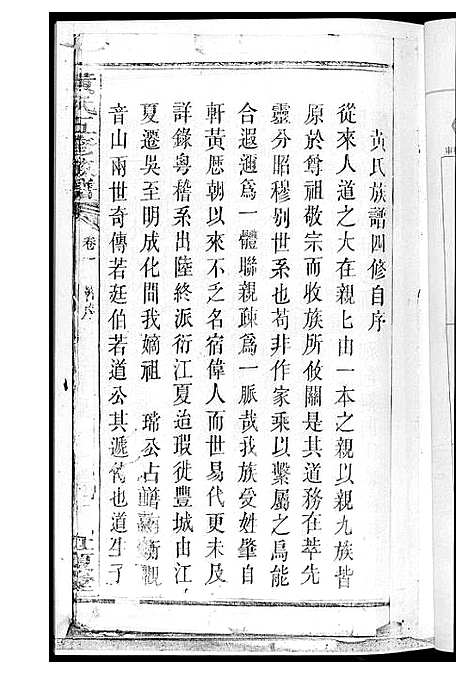 黄氏族譜四修自序
從來人道之大在親匕由一本之親以親九族皆
原於尊祖敬宗而收族所攸關是其道務在萃先
靈分昭穆别世系也苟非作家乘以繫屬之爲能
合遐邇爲一體聯親疎爲一脈哉我族受姓肇自
軒黄厯朝以來不乏名宿偉人而世易代更未及
詳錄粤稽系出陸終派衍江夏迨瑕徙豐城由江
夏遷吳至明成化間我嫡祖 瑞公占籍 衡觀
音山兩世奇傳若廷伯若道公其遞 也道生子
黄氏五修族譜
卷一
序
江夏堂